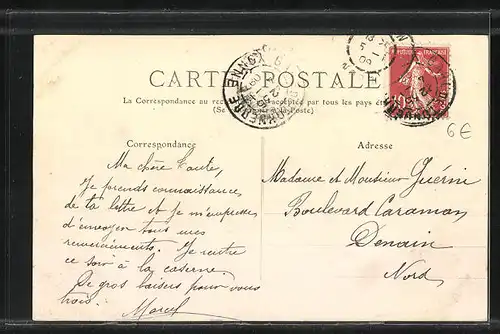 CARTE POSTALE
La Correspondance au acceptée par tous les pays
(Se à la Poste)
RÉPUBLIQUE FRANÇAISE
10
TONNERRE YONNE
6€
Correspondance
Adresse
Ma chère Tante,
Je prends connaissance
de ta lettre et je m'empresse
d'envoyer tous mes
remerciements. Je rentre
ce soir à la caserne.
De gros baisers pour vous
trois. Marcel
Madame et Monsieur Guérin
Boulevard Caraman
Denain
Nord